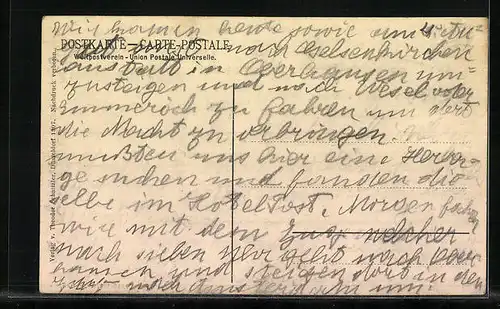 Wir kamen heute sowie am
POSTKARTE — CARTE POSTALE
nach Gelsenkirchen
Weltpostverein - Union Postale Universelle.
anstatt in Oberhausen um-
zusteigen und nach Wesel oder
Emmerich zu fahren um dort
die Nacht zu verbringen
mußten uns hier eine Herber-
ge suchen und fanden die-
selbe im Hotel Post. Morgen fahren
wir mit dem Zug welcher
nach sieben Uhr geht nach Ober-
hausen und steigen dort in den
Zug nach Amsterdam um.
Verlag v. Theodor Düsseldorf 1907. Nachdruck verboten.